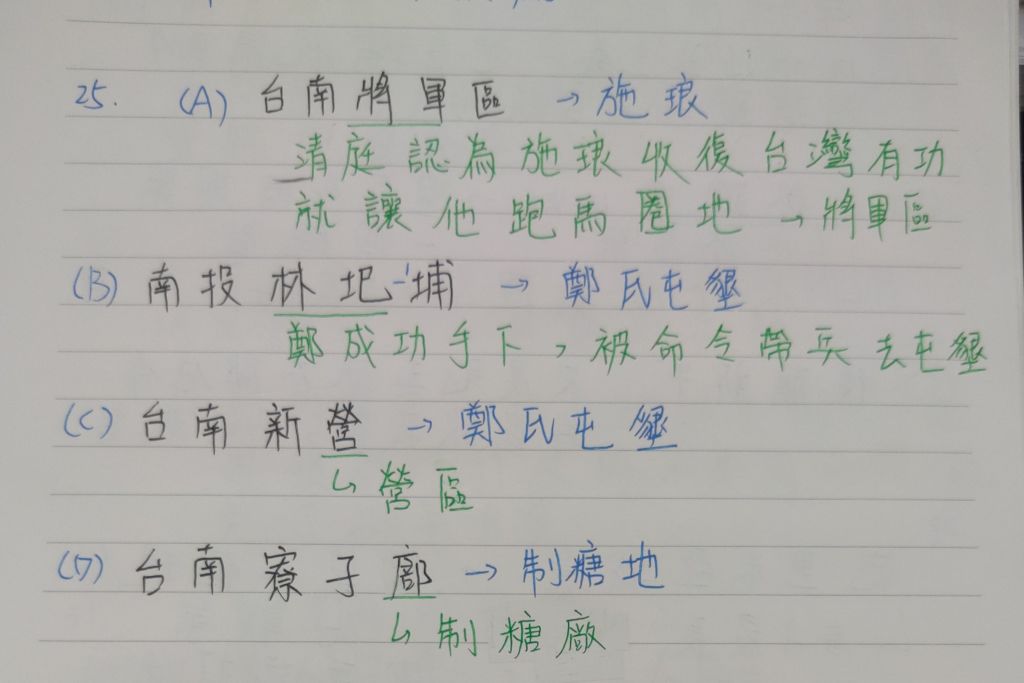 25. (A) 台南將軍區 → 施琅
清庭認為施琅收復台灣有功
就讓他跑馬圈地 → 將軍區
(B) 南投林圯埔 → 鄭氏屯墾
鄭成功手下,被命令帶兵去屯墾
(C) 台南新營 → 鄭氏屯墾
↳ 營區
(D) 台南寮子廍 → 制糖地
↳ 制糖廠